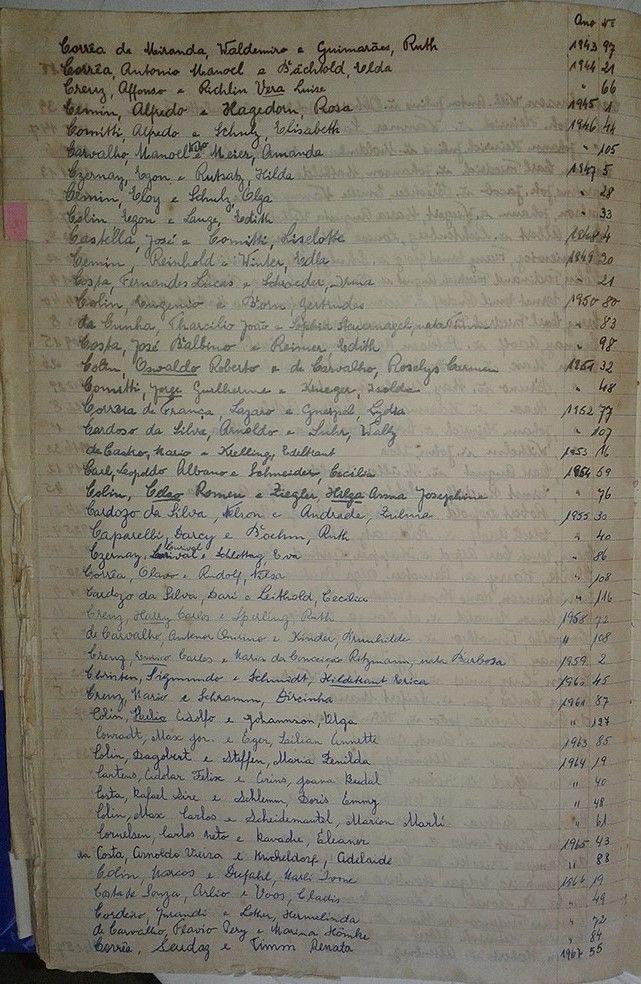 Ano Nº
Corrêa de Miranda, Waldemiro e Guimarães, Ruth 1943 97
Corrêa, Antonio Manoel e Bächtold, Elda 1944 21
Creuz, Affonso e Richlin Vera Luise " 66
Cemin, Alfredo e Hagedorn, Rosa 1945 1
Comitti, Alfredo e Schulz, Elisabeth 1946 44
Carvalho Manoel e Meier, Amanda " 105
Czernay, Egon e Rutsatz, Hilda 1947 5
Cemin, Eloy e Schulz, Olga " 28
Colin Egon e Lange, Edith " 33
Castellá, José e Comitti, Liselotte 1948 4
Cemin, Reinhold e Winter, Edla 1949 20
Costa, Fernandes Lucas e Schroeder, Irma " 21
Colin, Eugenio e Born, Gertrudes 1950 80
da Cunha, Tharcilio João e Sophia " 83
Costa, José Balbino e Reimer, Edith " 98
Colin, Oswaldo Roberto e de Carvalho, Roselys Carmen 1951 32
Comitti, Jorge Guilherme e Krieger, Isolde " 48
Correia de França, Lazaro e Lydia 1952 77
Cardoso da Silva, Arnoldo e Suhr, Waltz " 107
de Castro, Mario e Kielling, Edeltraut 1953 16
Carl, Leopoldo Albano e Schneider, Cecilia 1954 59
Colin, Celso Romeu e Ziegler, Helga Anna Josephine " 76
Cardozo da Silva, Nelson e Andrade, Zulma 1955 30
Caparelli, Darcy e Boehm, Ruth " 40
Czernay, Lourival e Schlottag Eva " 86
Corrêa, Olavo e Rudolf, Nilsa " 108
Cardozo da Silva, Dari e Leithold, Cecilia " 116
Creuz, Harry Carlos e Sperling Ruth 1958 72
de Carvalho, Antenor Onirino e Kinder, Brunhilde " 108
Creuz, Carlos e Maria da Conceição Ritzmann, nata Barbosa 1959 2
Christen, Sigmundo e Schmidt, Hildetraut Erica 1960 45
Creuz, Mario e Schramm, Dircinha 1961 87
Colin, Helio Adolfo e Johannson, Olga " 127
Conradt, Max jor. e Eger, Lilian Annette 1963 85
Colin, Dagobert e Steffen, Maria Zenilda 1964 19
Carlens, Teodor Felix e Crins, Joana " 40
Costa, Rafael Dire e Schlemm, Doris Emmy " 48
Colin, Max Carlos e Scheidemantel, Marion Marli " 61
Cornelsen, Carlos neto e Ravache, Eleanor 1965 43
da Costa, Arnoldo Vieira e Mücheldorf, Adelaide " 88
Colin, Marcos e Drefahl, Marli Ivone 1966 19
Costa de Souza, Arlio e Voos, Cladis " 49
Cordeiro, Jurandi e Loher, Hermelinda " 72
de Carvalho, Flavio Pery e Marina Hömke " 84
Corrêa, e Timm Renata 1967 55